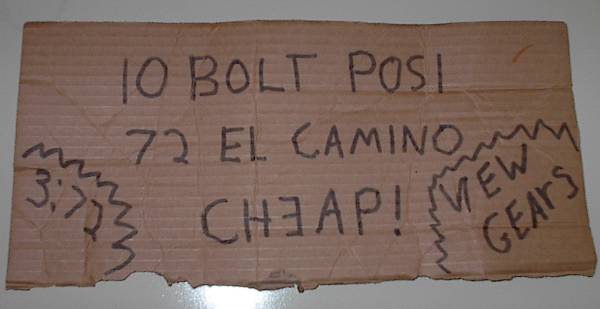 10 BOLT POSI
72 EL CAMINO
CHEAP!
3:72
VIEW
GEArS